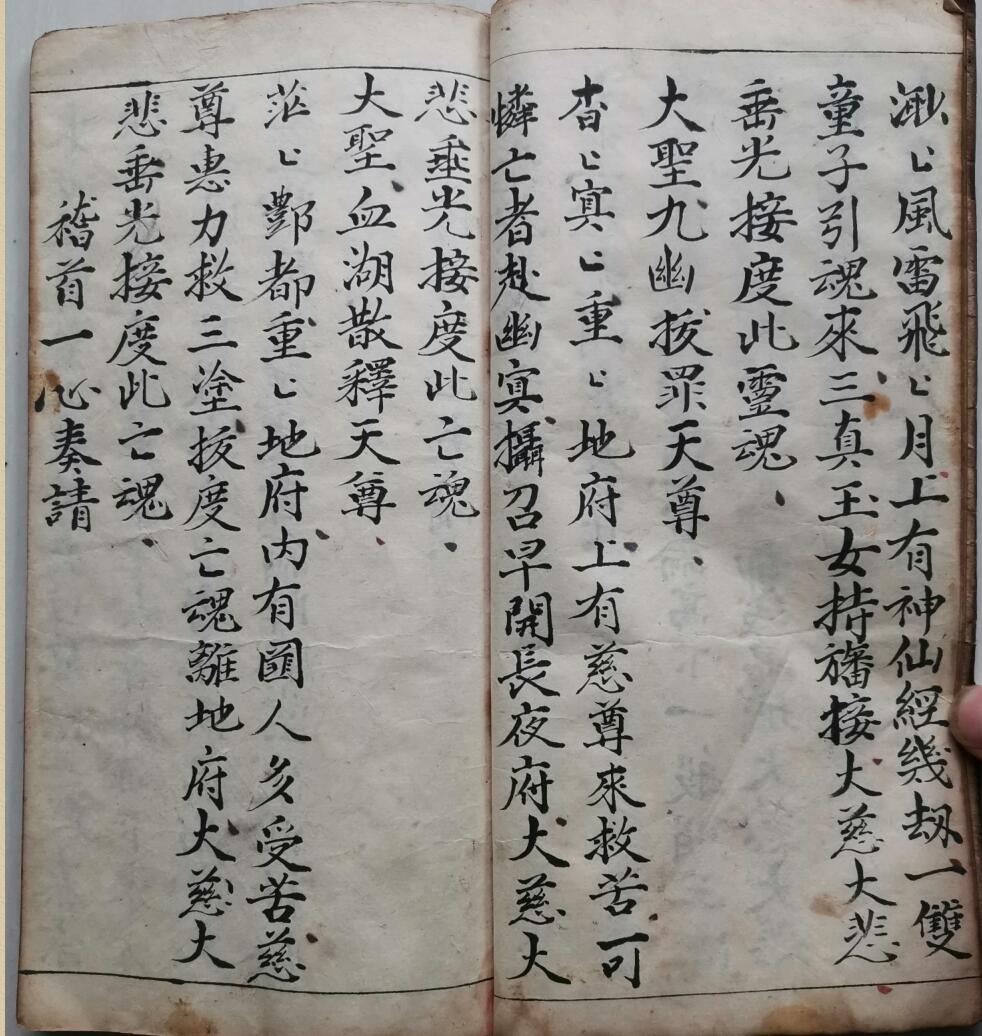 渺〻風雷飛〻月上有神仙經幾刼一雙
童子引魂來三真玉女持旛接大慈大悲
垂光接度此靈魂
大聖九幽拔罪天尊
杳〻冥〻重〻地府上有慈尊來救苦可
憐亡者赴幽冥攝召早開長夜府大慈大
悲垂光接度此亡魂
大聖血湖散釋天尊
茫〻酆都重〻地府内有囬人久受苦慈
尊惠力救三塗拔度亡魂離地府大慈大
悲垂光接度此亡魂
稽首一心奏請